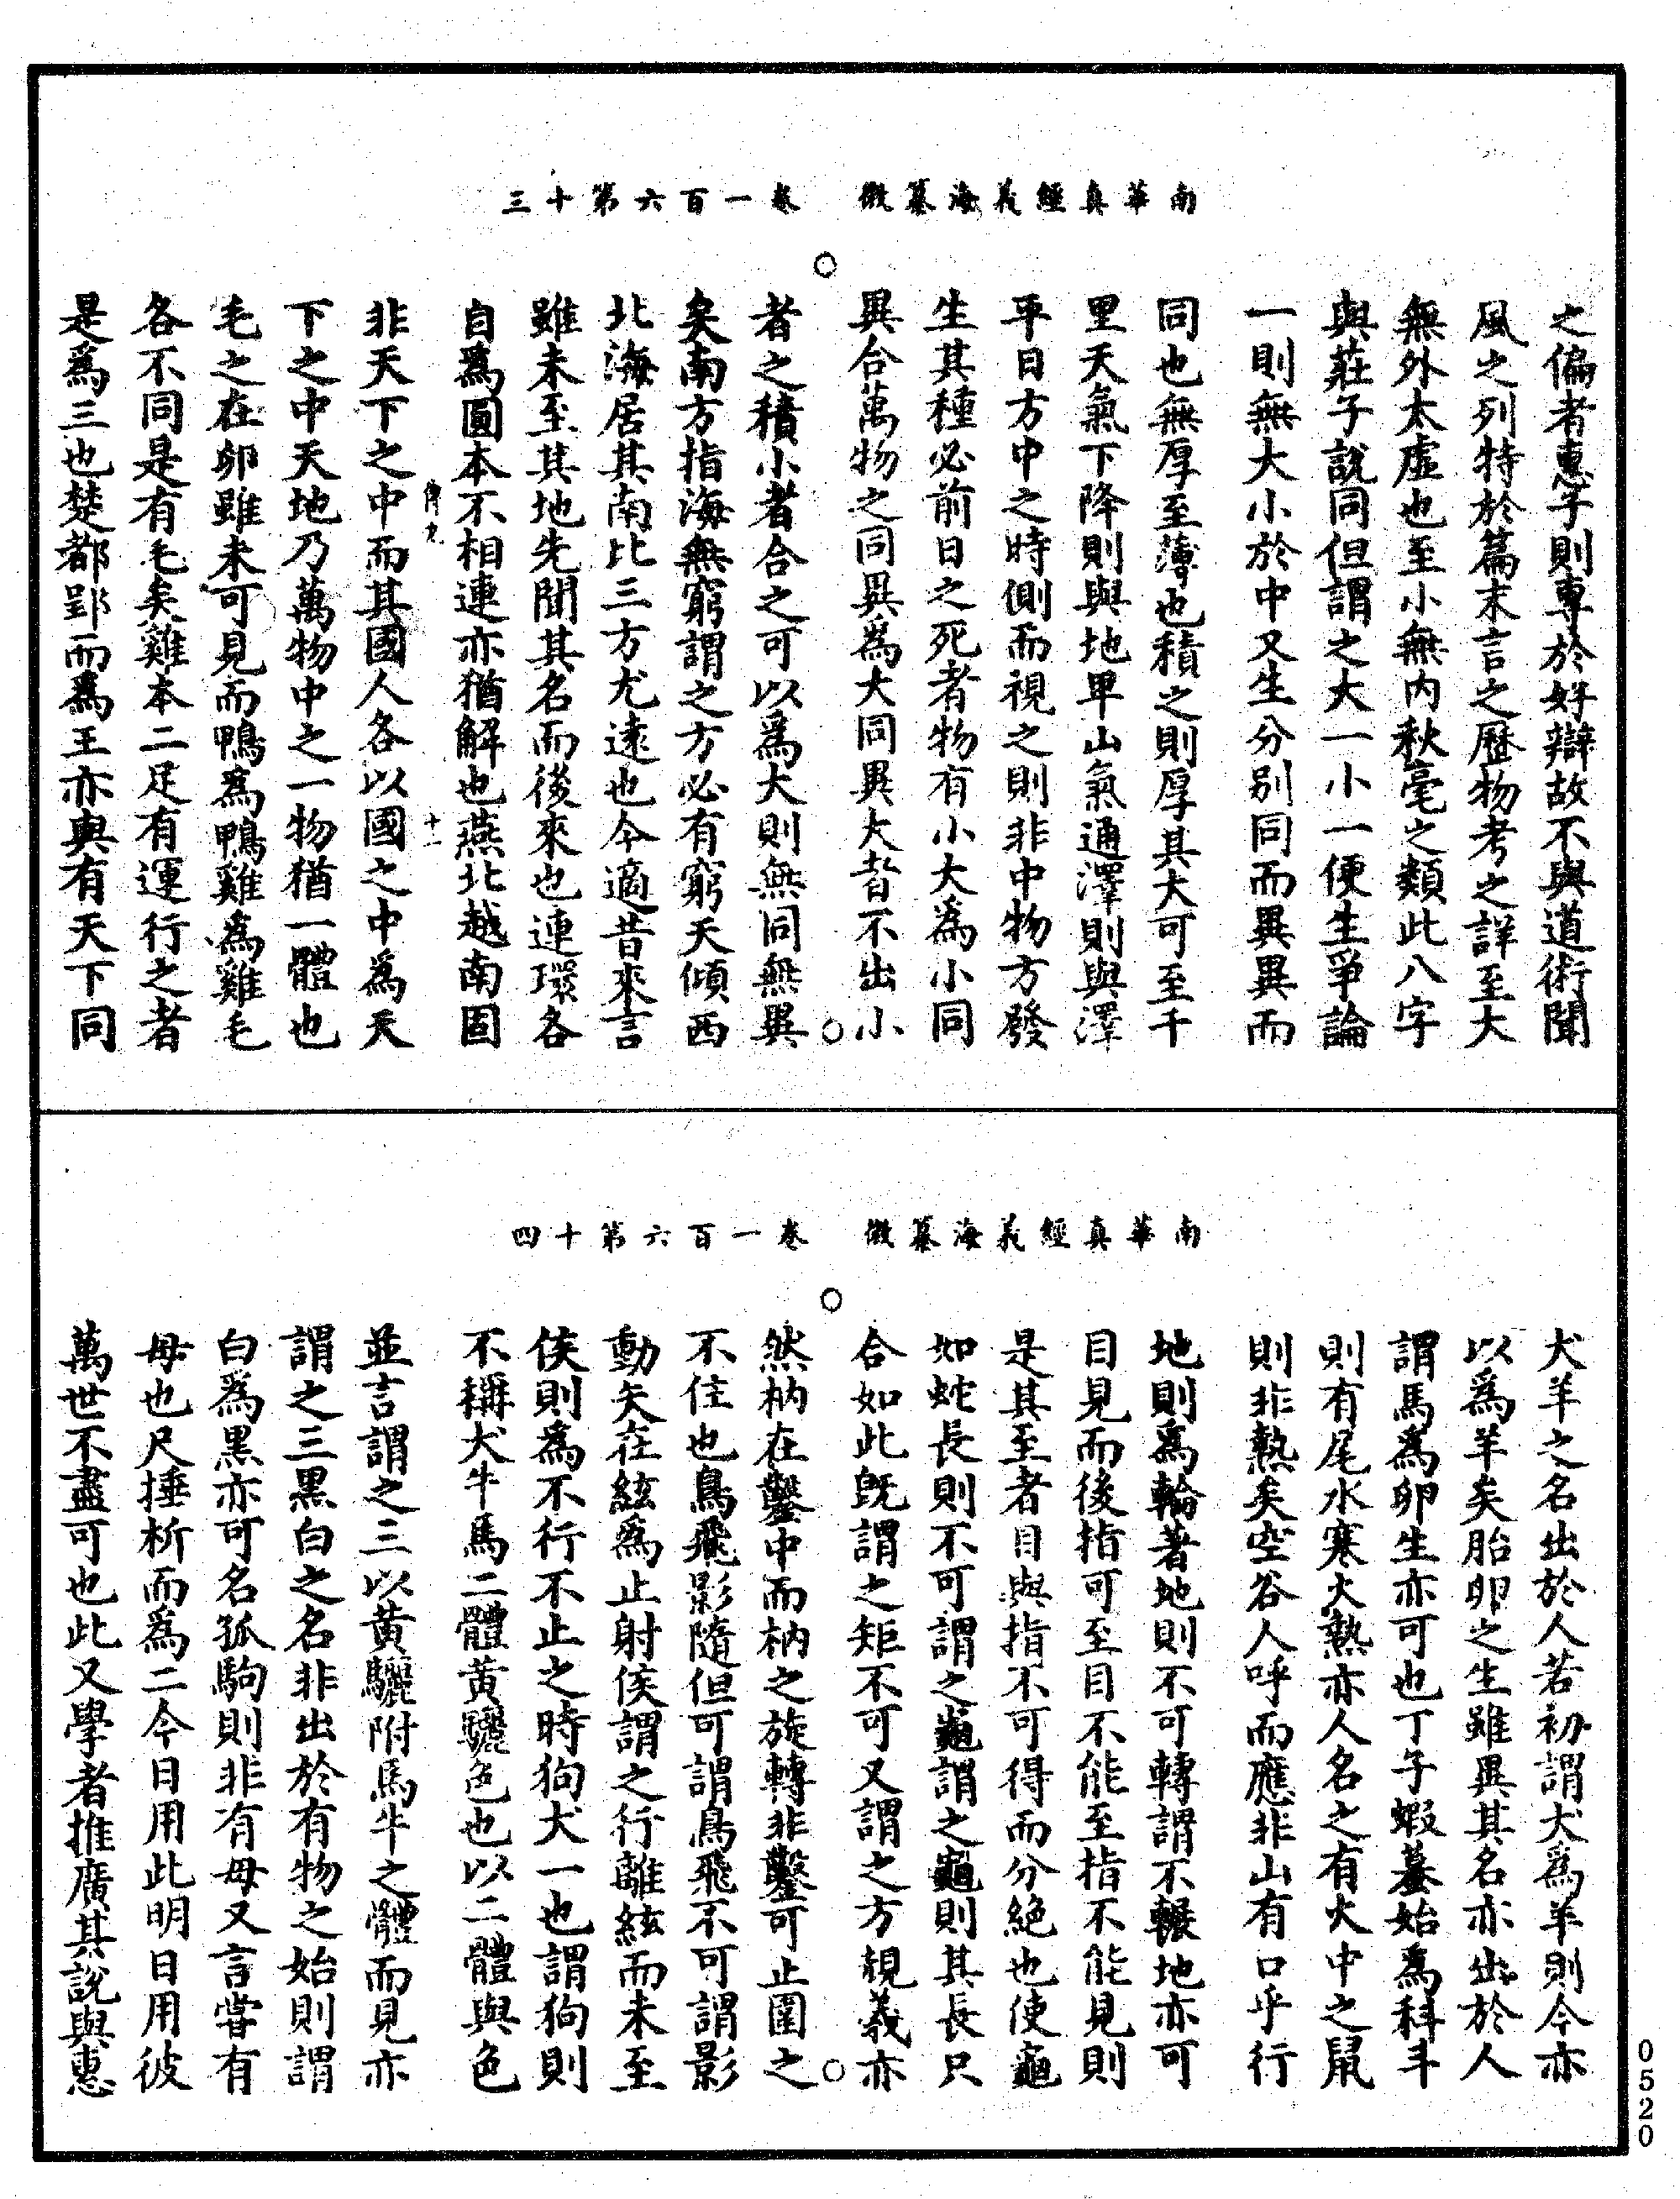 南華真經義海纂微　卷一百六第十三
之偏者惠子則專於好辯故不與道術聞
風之列特於篇末言之歷物考之詳至大
無外太虛也至小無內秋毫之類此八字
與莊子說同但謂之大一小一便生爭論
一則無大小於中又生分別同而異異而
同也無厚至薄也積之則厚其大可至千
里天氣下降則與地卑山氣通澤則與澤
平日方中之時側而視之則非中物方發
生其種必前日之死者物有小大為小同
異合萬物之同異爲大同異大者不出小
者之積小者合之可以爲大則無同無異
矣南方指海無窮謂之方必有窮天傾西
北海居其南比三方尤遠也今適昔來言
雖未至其地先聞其名而後來也連環各
自爲圓本不相連亦猶解也燕北越南固
十一
非天下之中而其國人各以國之中為天
下之中天地乃萬物中之一物猶一體也
毛之在卵雖未可見而鴨爲鴨雞爲雞毛
各不同是有毛矣雞本二足有運行之者
是爲三也楚都郢而爲王亦與有天下同
南華真經義海纂微　卷一百六第十四
犬羊之名出於人若初謂犬爲羊則今亦
以爲羊矣胎卵之生雖異其名亦出於人
謂馬爲卵生亦可也丁子蝦蟇始爲科斗
則有尾水寒火熱亦人名之有火中之鼠
則非熱矣空谷人呼而應非山有口乎行
地則爲輪著地則不可轉謂不輾地亦可
目見而後指可至目不能至指不能見則
是其至者目與指不可得而分絕也使龜
如蛇長則不可謂之龜謂之龜則其長只
合如此旣謂之矩不可又謂之方規義亦
然枘在鑿中而枘之旋轉非鑿可止圍之
不住也鳥飛影隨但可謂鳥飛不可謂影
動矢在絃爲止射侯謂之行離絃而未至
侯則為不行不止之時狗犬一也謂狗則
不稱犬牛馬二體黃驪色也以二體與色
並言謂之三以黃驪附馬牛之體而見亦
謂之三黑白之名非出於有物之始則謂
白爲黑亦可名孤駒則非有母又言嘗有
母也尺捶析而爲二今日用此明日用彼
萬世不盡可也此又學者推廣其說與惠
0520